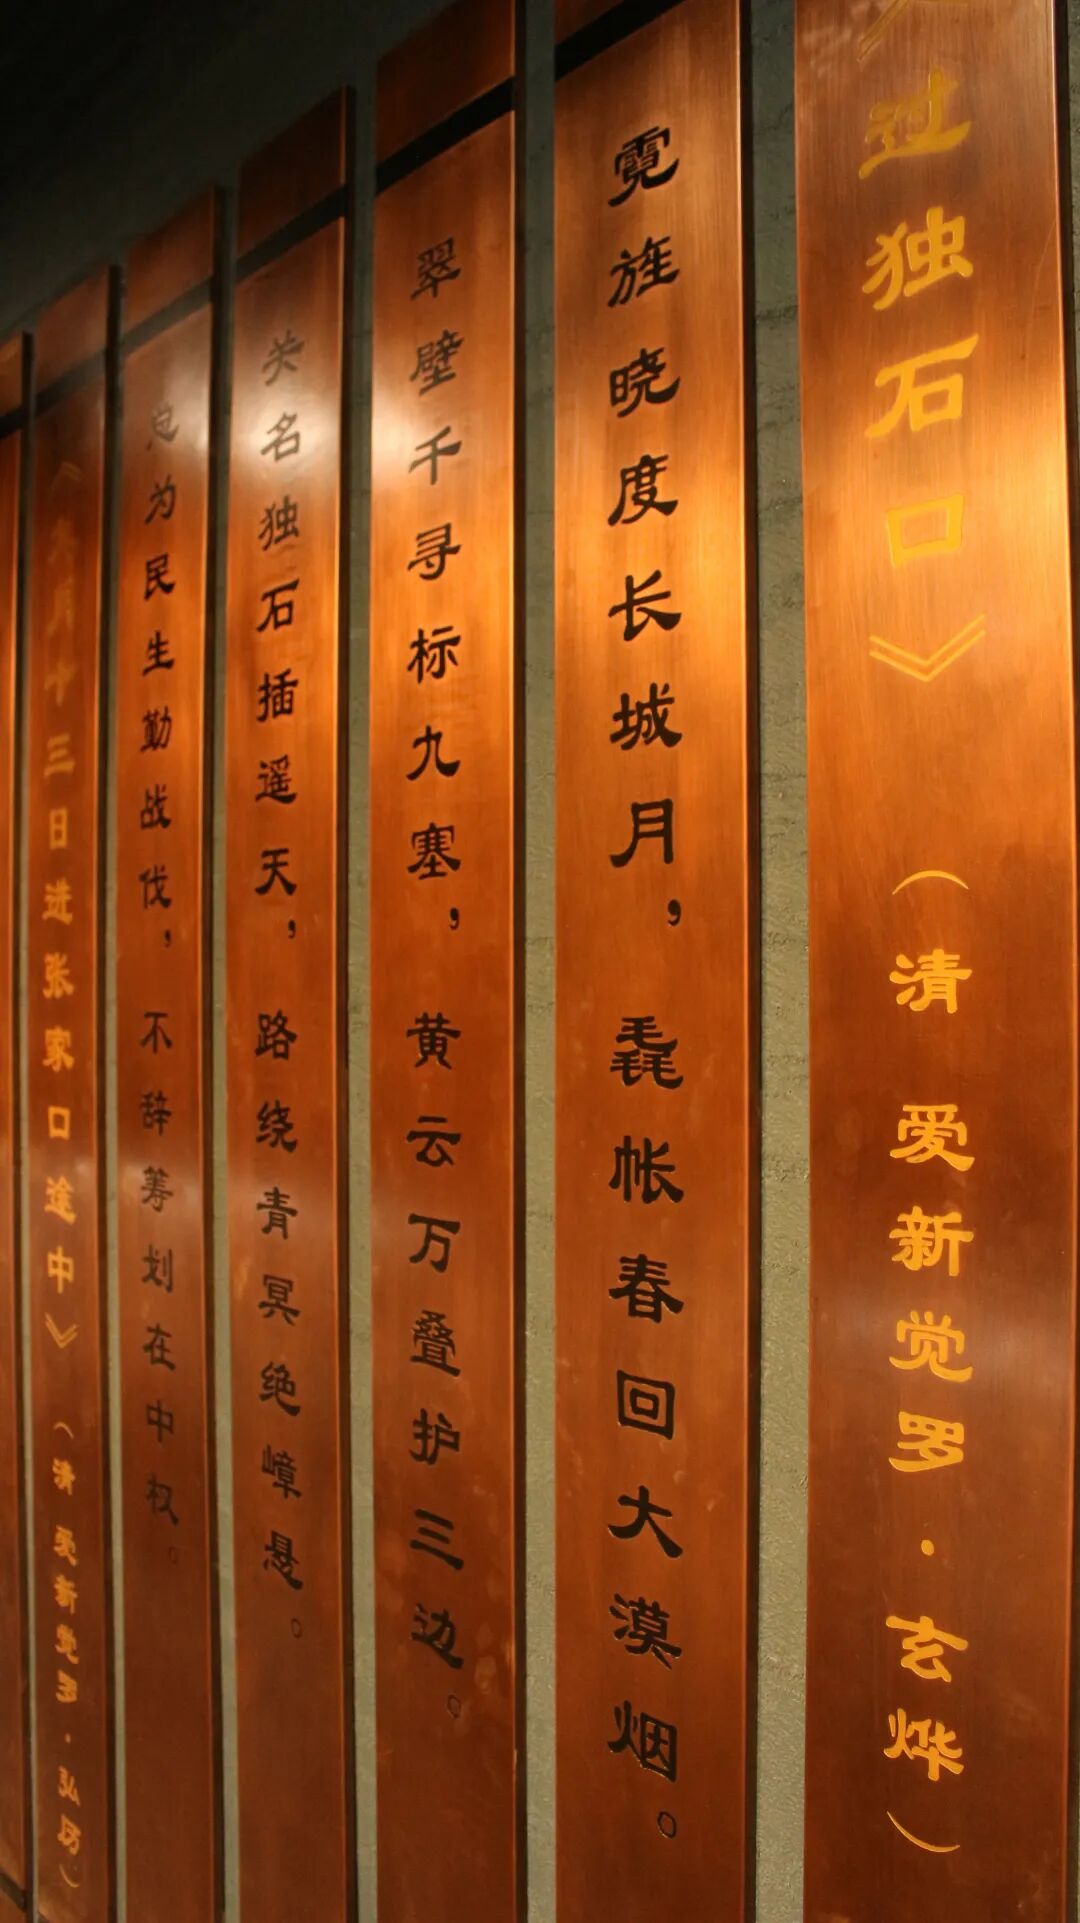 《过独石口》 （清 爱新觉罗·玄烨）
霓旌晓度长城月，毳帐春回大漠烟。
翠壁千寻标九塞，黄云万叠护三边。
关名独石插遥天，路绕青冥绝嶂悬。
总为民生勤战伐，不辞筹划在中权。
月十三日进张家口途中》 （清 爱新觉罗·弘历）